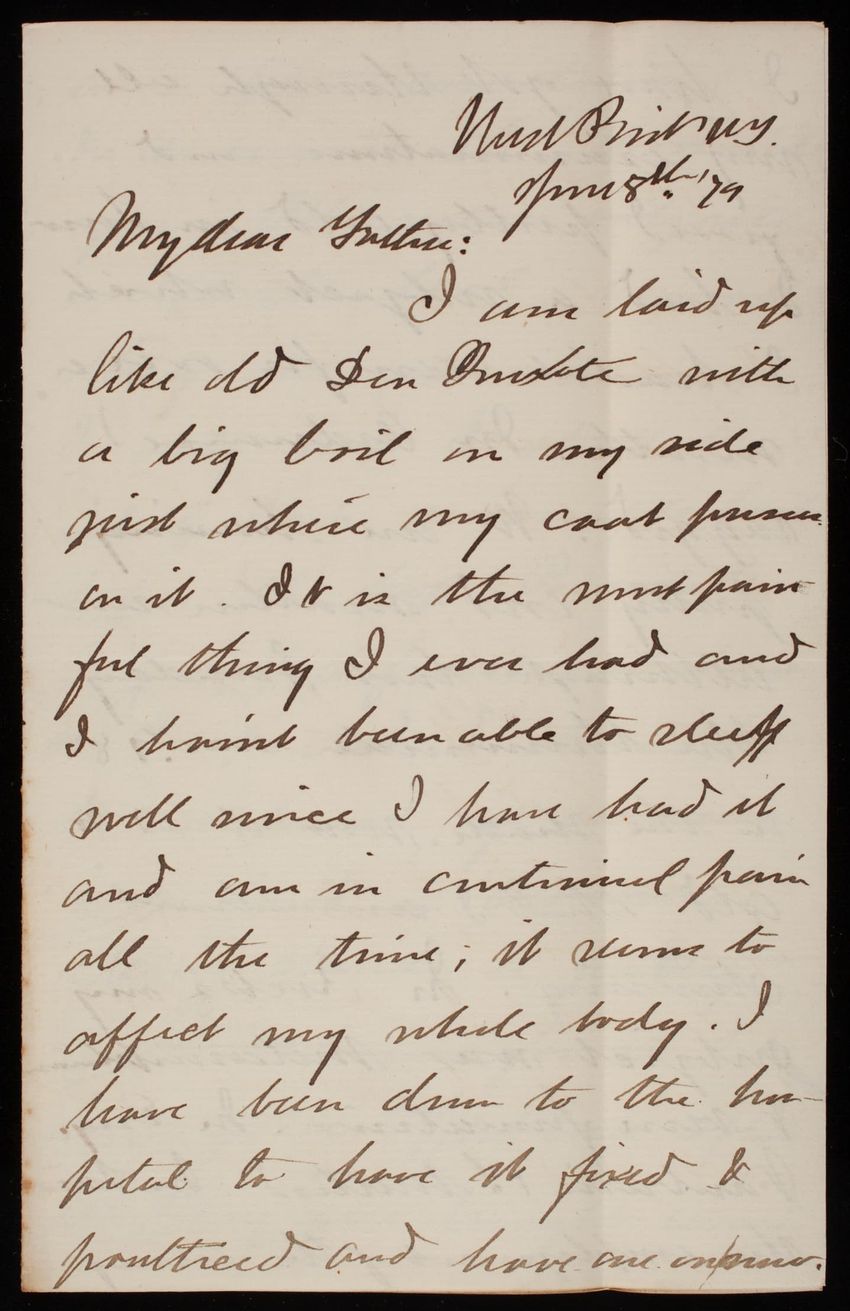 West Point N.Y.
June 8th, '79
My dear Father:
I am laid up
like old Don Quixote with
a big boil on my side
just where my coat presses
on it. It is the most pain
ful thing I ever had and
I hain't been able to sleep
well since I have had it
and am in continuel pain
all the time; it seems to
affect my whole body. I
have been down to the hos-
pital to have it fixed &
poulticed and have one on now.